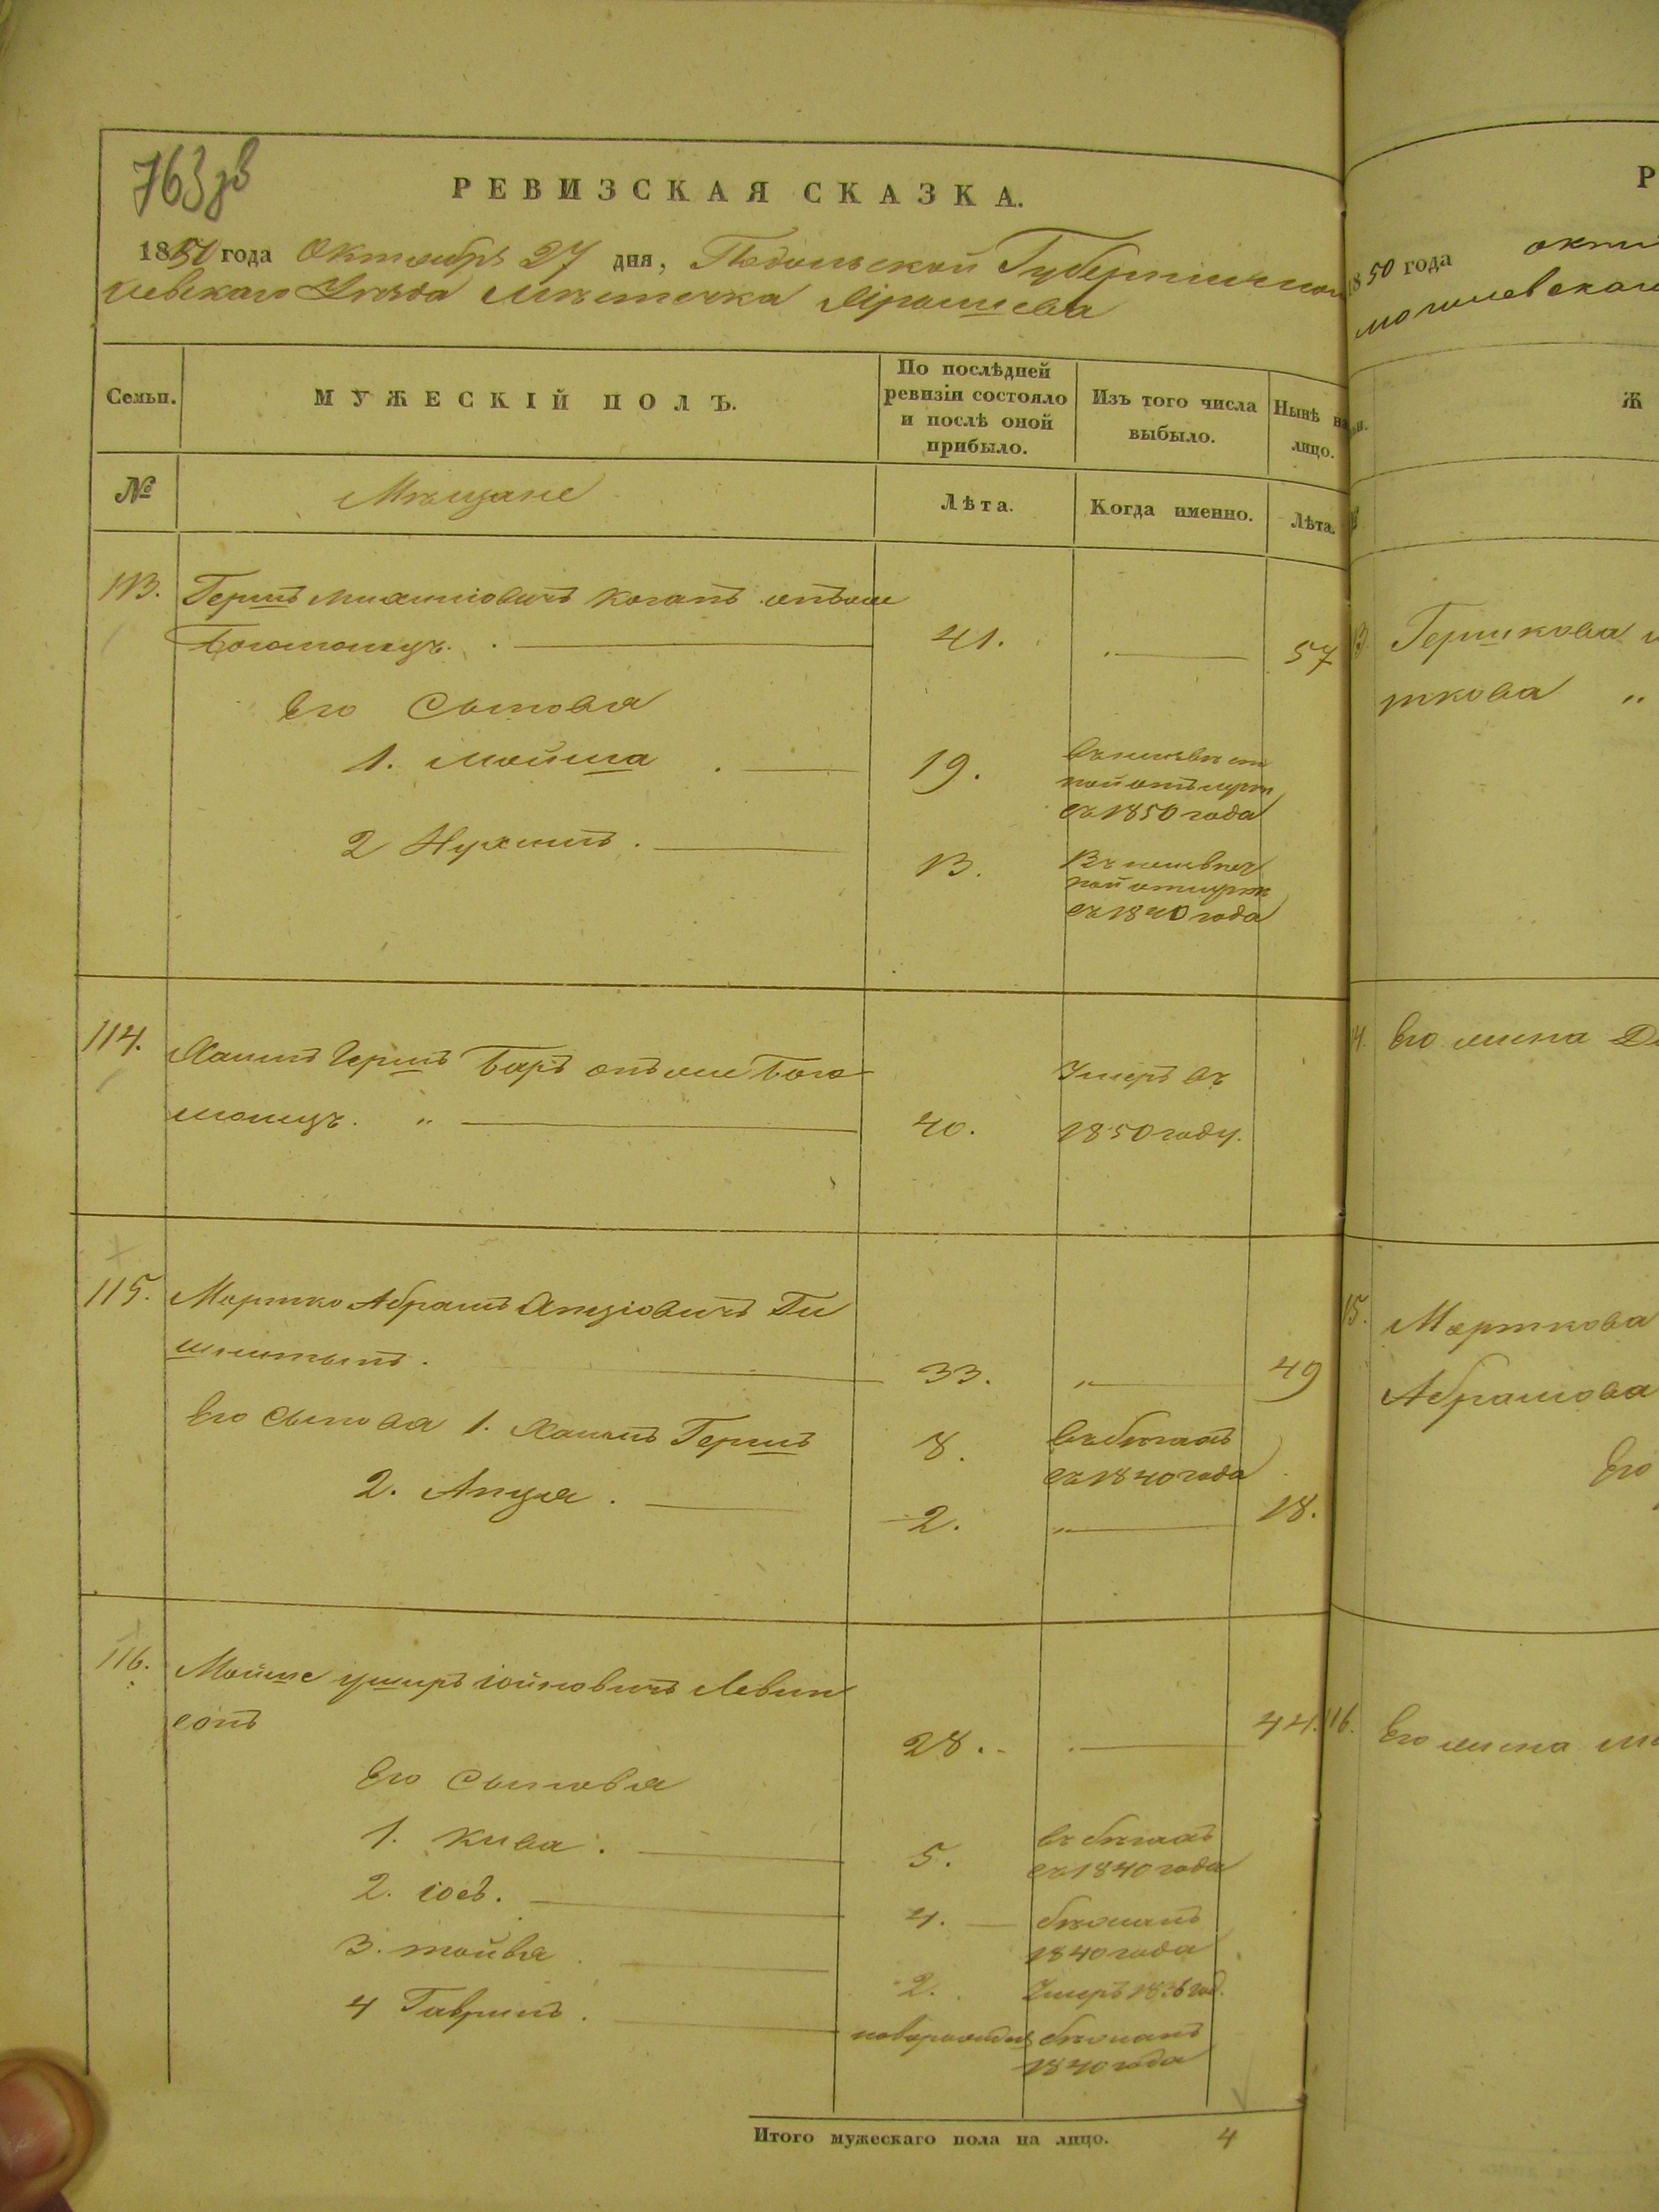 763 зв
РЕВИЗСКАЯ СКАЗКА.
1850 года Октября 27 дня, Подольской Губерніи Моги
левскаго Уезда Местечка Ярышева
Семьи.
МУЖЕСКІЙ ПОЛЪ.
По послѣдней
ревизіи состояло
и послѣ оной
прибыло.
Изъ того числа
выбыло.
Нынѣ на
лицо.
№
Мещане
Лѣта.
Когда именно.
Лѣта.
113. Гершъ Когапъ онъ же
Богомолецъ. 41. 57
Его Сыновья
1. Мойша 19.
съ 1850 года
2 Нухимъ. 13.
съ 1840 года
114. Хаимъ Гершъ Беръ онъ же Бого
молецъ. " 40. Умеръ въ
1850 году.
115. Мортко Абрамъ Анциовичъ
33. " 49
Его Сыновья 1. Хаимъ Гершъ 8. Въ бегахъ
съ 1840 года
2. Анця. 2. " 18.
116. Мойше Ушеръ Іойновичъ Левин
сонъ 28. 44.
Его Сыновья
1. Кива. 5. Въ бегахъ
съ 1840 года
2. Іосъ. 4.
1840 года
3. Тойвя 2. Умеръ 1836 год.
4 Гаврило. новорожден
1840 года
Итого мужескаго пола на лицо. 4
Р
1850 года окт
могилевскаго
Ж
Гершкова
ткова "
Его жена
15. Морткова
Абрамова
Его
116. Его жена